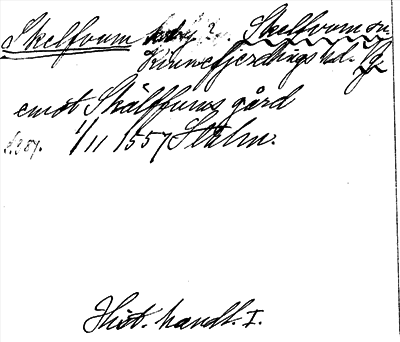 Skelfvum Skelfvum sn.
Kinnefjerdings hd. Vg.
emot Skälffwms gård
1/11 1557 Sthlm.
Hist. handl. I.